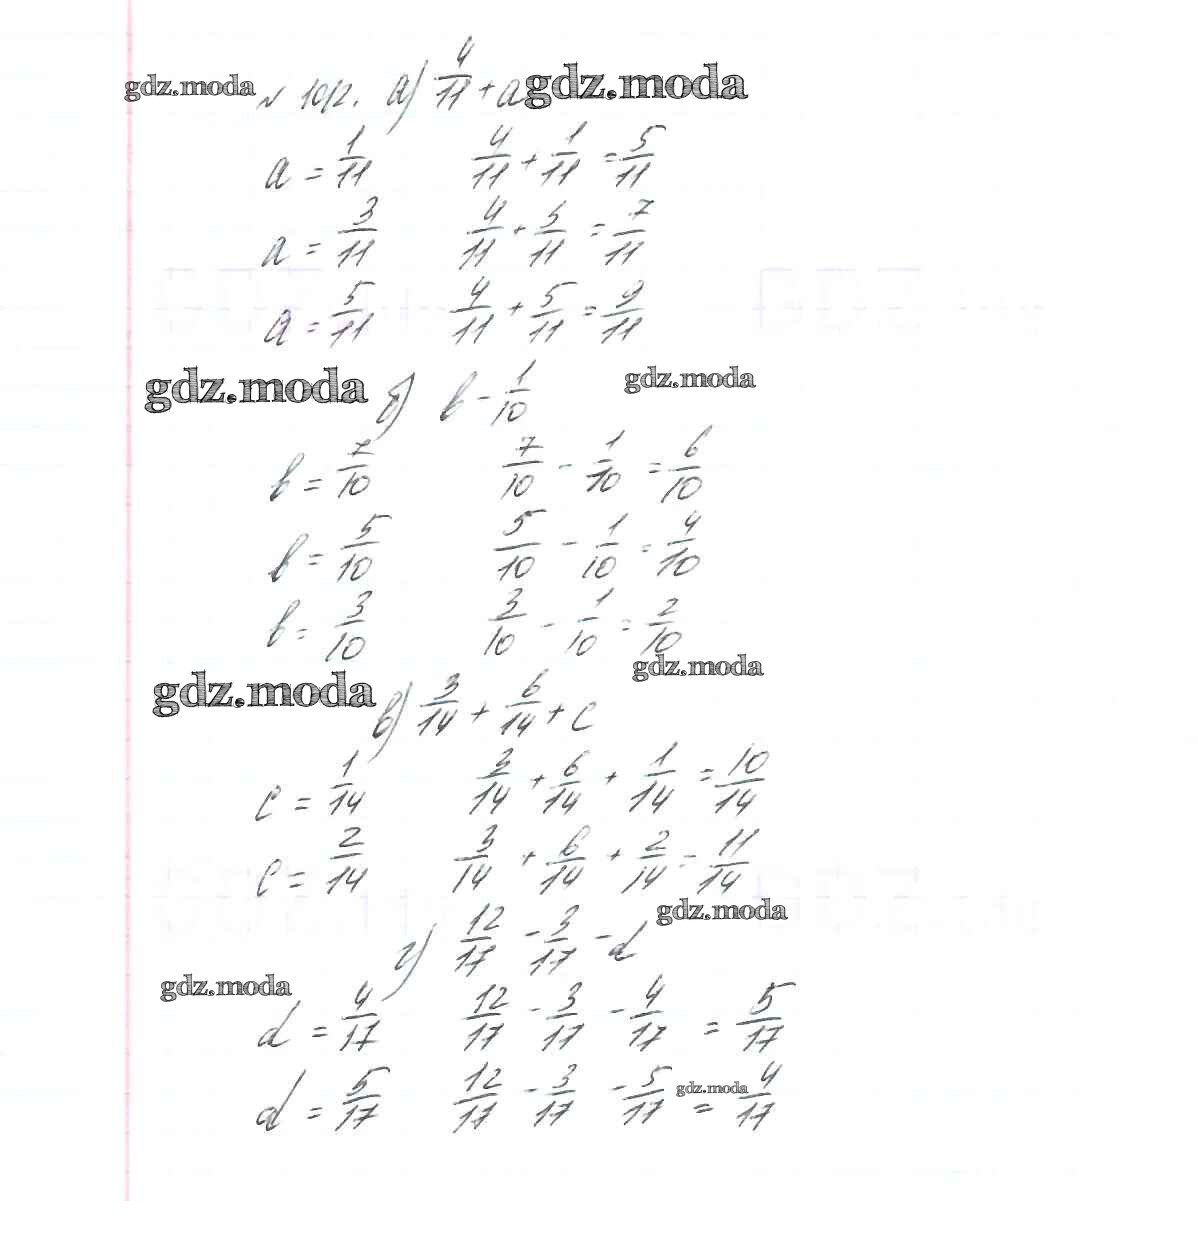 gdz.moda № 1012. а) 4/11 + a gdz.moda
a = 1/11 4/11 + 1/11 = 5/11
a = 3/11 4/11 + 3/11 = 7/11
a = 5/11 4/11 + 5/11 = 9/11
gdz.moda б) b - 1/10 gdz.moda
b = 7/10 7/10 - 1/10 = 6/10
b = 5/10 5/10 - 1/10 = 4/10
b = 3/10 3/10 - 1/10 = 2/10
gdz.moda
gdz.moda в) 3/14 + 6/14 + c
c = 1/14 3/14 + 6/14 + 1/14 = 10/14
c = 2/14 3/14 + 6/14 + 2/14 = 11/14
gdz.moda
г) 12/17 - 3/17 - d
gdz.moda
d = 4/17 12/17 - 3/17 - 4/17 = 5/17
d = 5/17 12/17 - 3/17 - 5/17 gdz.moda = 4/17